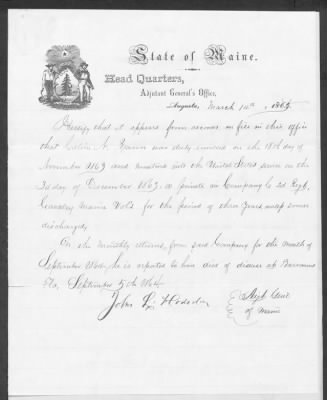 State of Maine.
Head Quarters,
Adjutant General's Office,
Augusta, March 14th, 1865.
I certify that it appears from records on file in this Office
that A. was duly enrolled on the 18th day of
November 1863 and mustered into the United States service on the
3d day of December 1863, as private in Company C 2d Regt.
Cavalry Maine Vols for the period of three years, unless sooner
discharged.
On the monthly returns, from said Company for the month of
September 1864, he is reported to have died of disease at Barrancas
Fla, September 5th 1864.
John L. Hodsdon
Adjt. Genl
of Maine